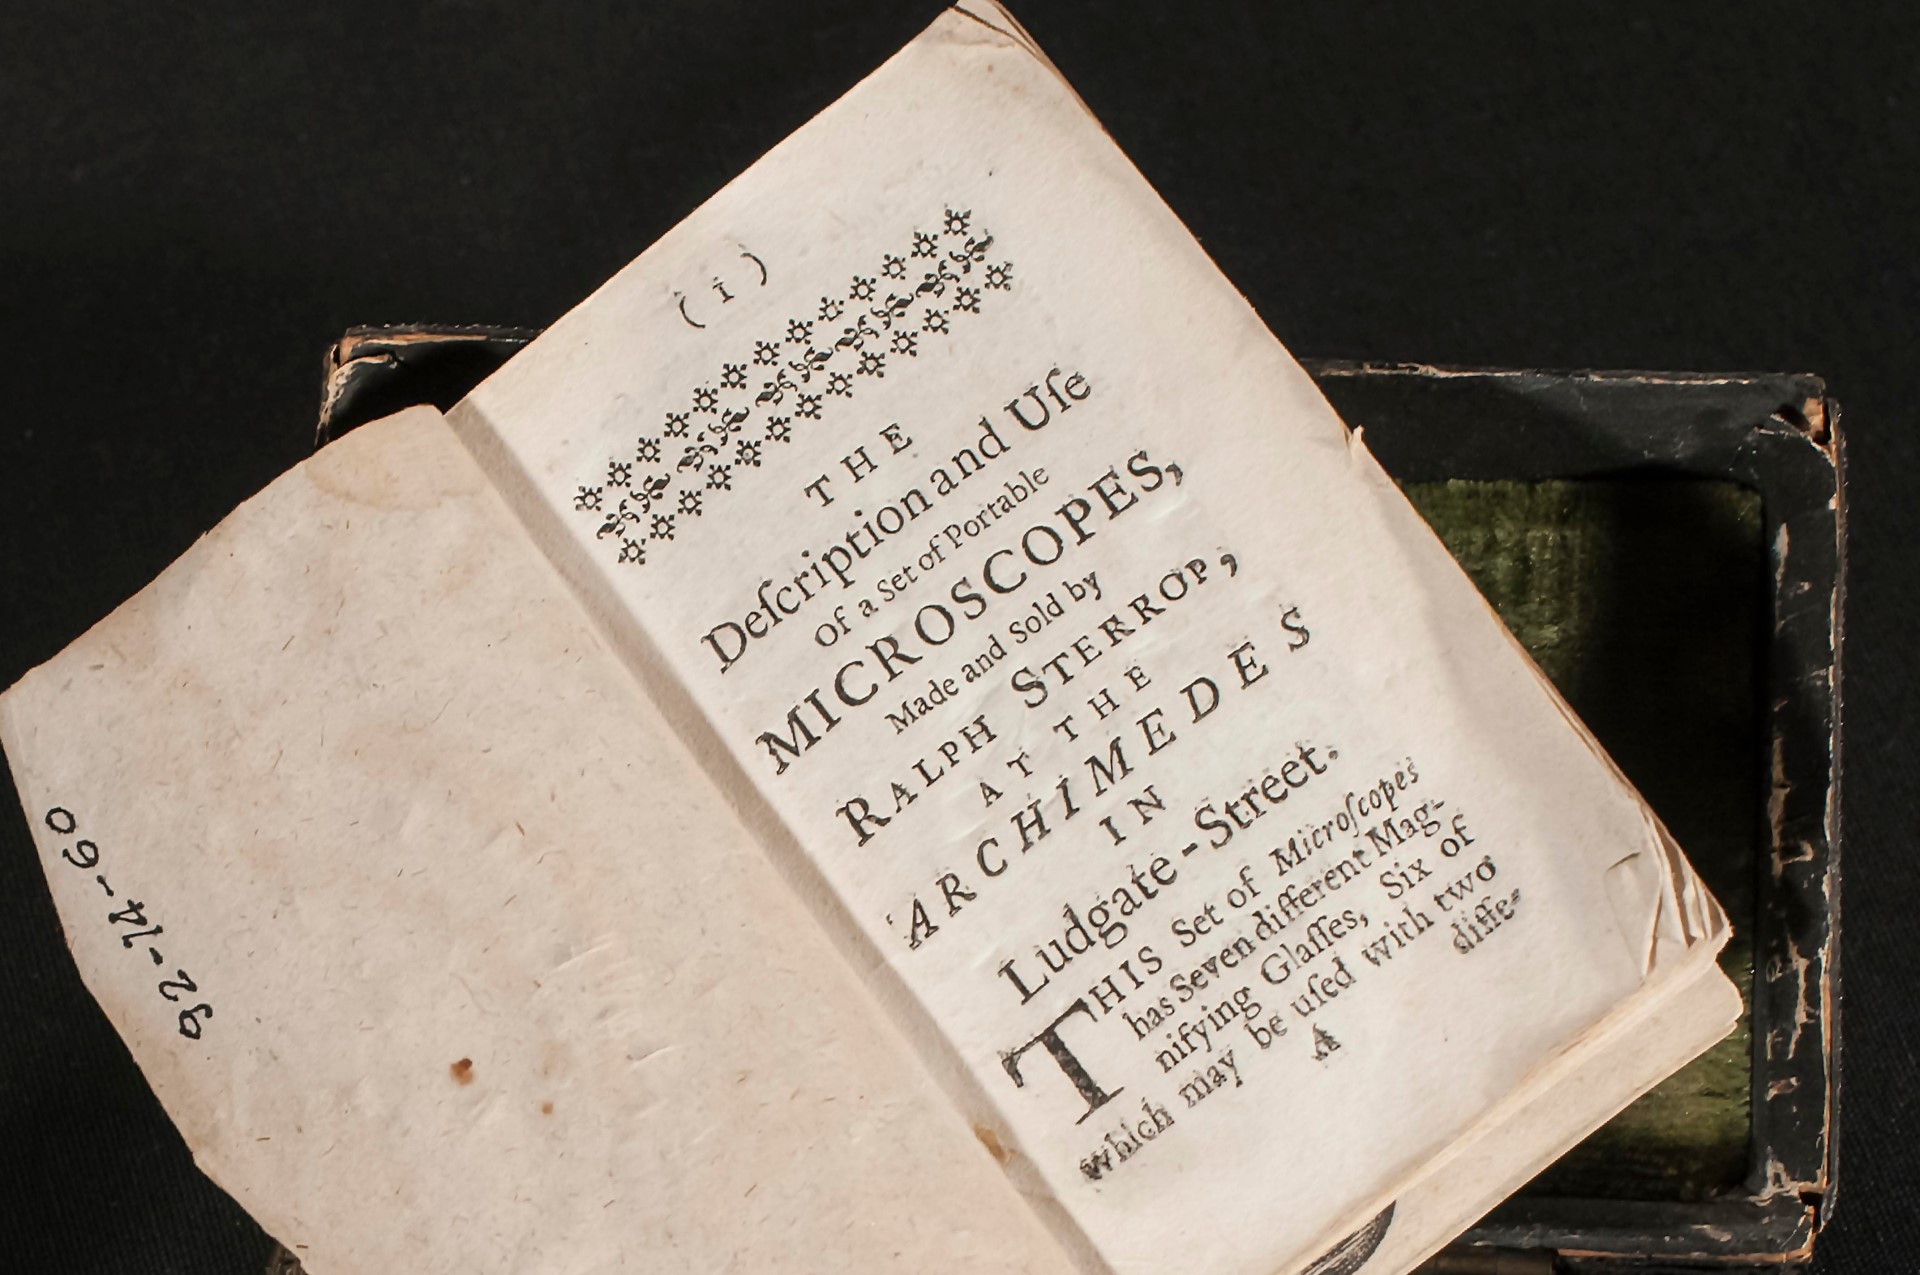 92-14-60
( i )
THE
Deſcription and Uſe
Of a Set of Portable
MICROSCOPES,
Made and Sold by
RALPH STERROP,
AT THE
ARCHIMEDES
IN
Ludgate-Street.
THIS Set of Microſcopes
has Seven different Mag-
nifying Glaſſes, Six of
which may be uſed with two
A
diffe-